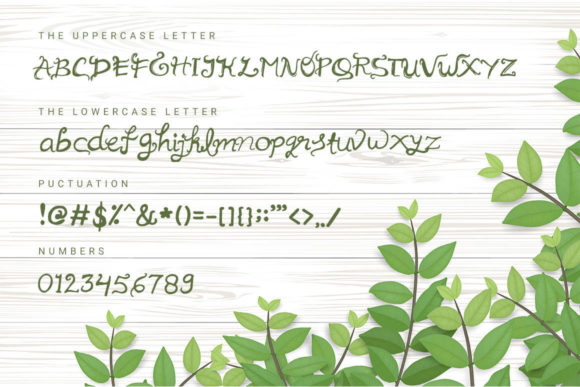 THE UPPERCASE LETTER
ABCDEFGHIJKLMNOPQRSTUVWXYZ
THE LOWERCASE LETTER
abcdefghijklmnopqrstuvwxyz
PUCTUATION
!@#$%^&*()=-[]{};:'"<>,./
NUMBERS
0123456789